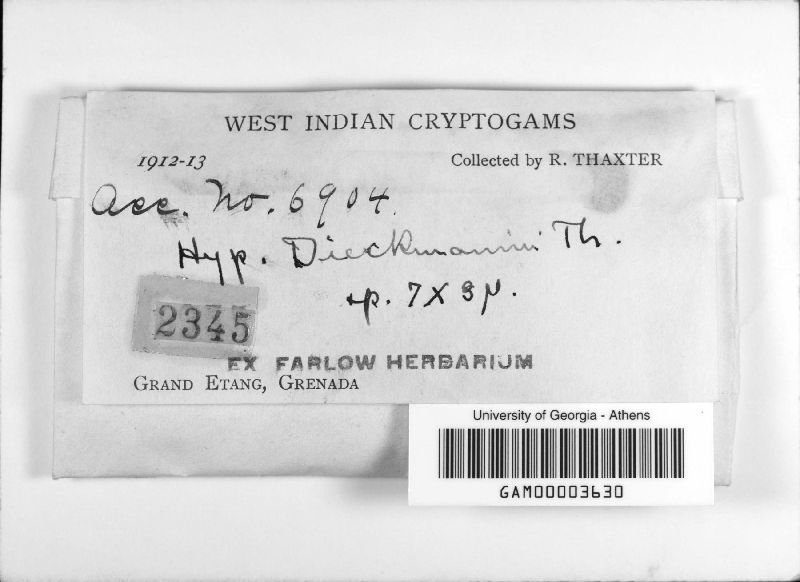 WEST INDIAN CRYPTOGAMS
1912-13 Collected by R. THAXTER
Acc. No. 6904.
Hyp. Dieckmannii Th.
sp. 7 X 3 µ.
2345
EX FARLOW HERBARIUM
GRAND ETANG, GRENADA
University of Georgia - Athens
GAM00003630